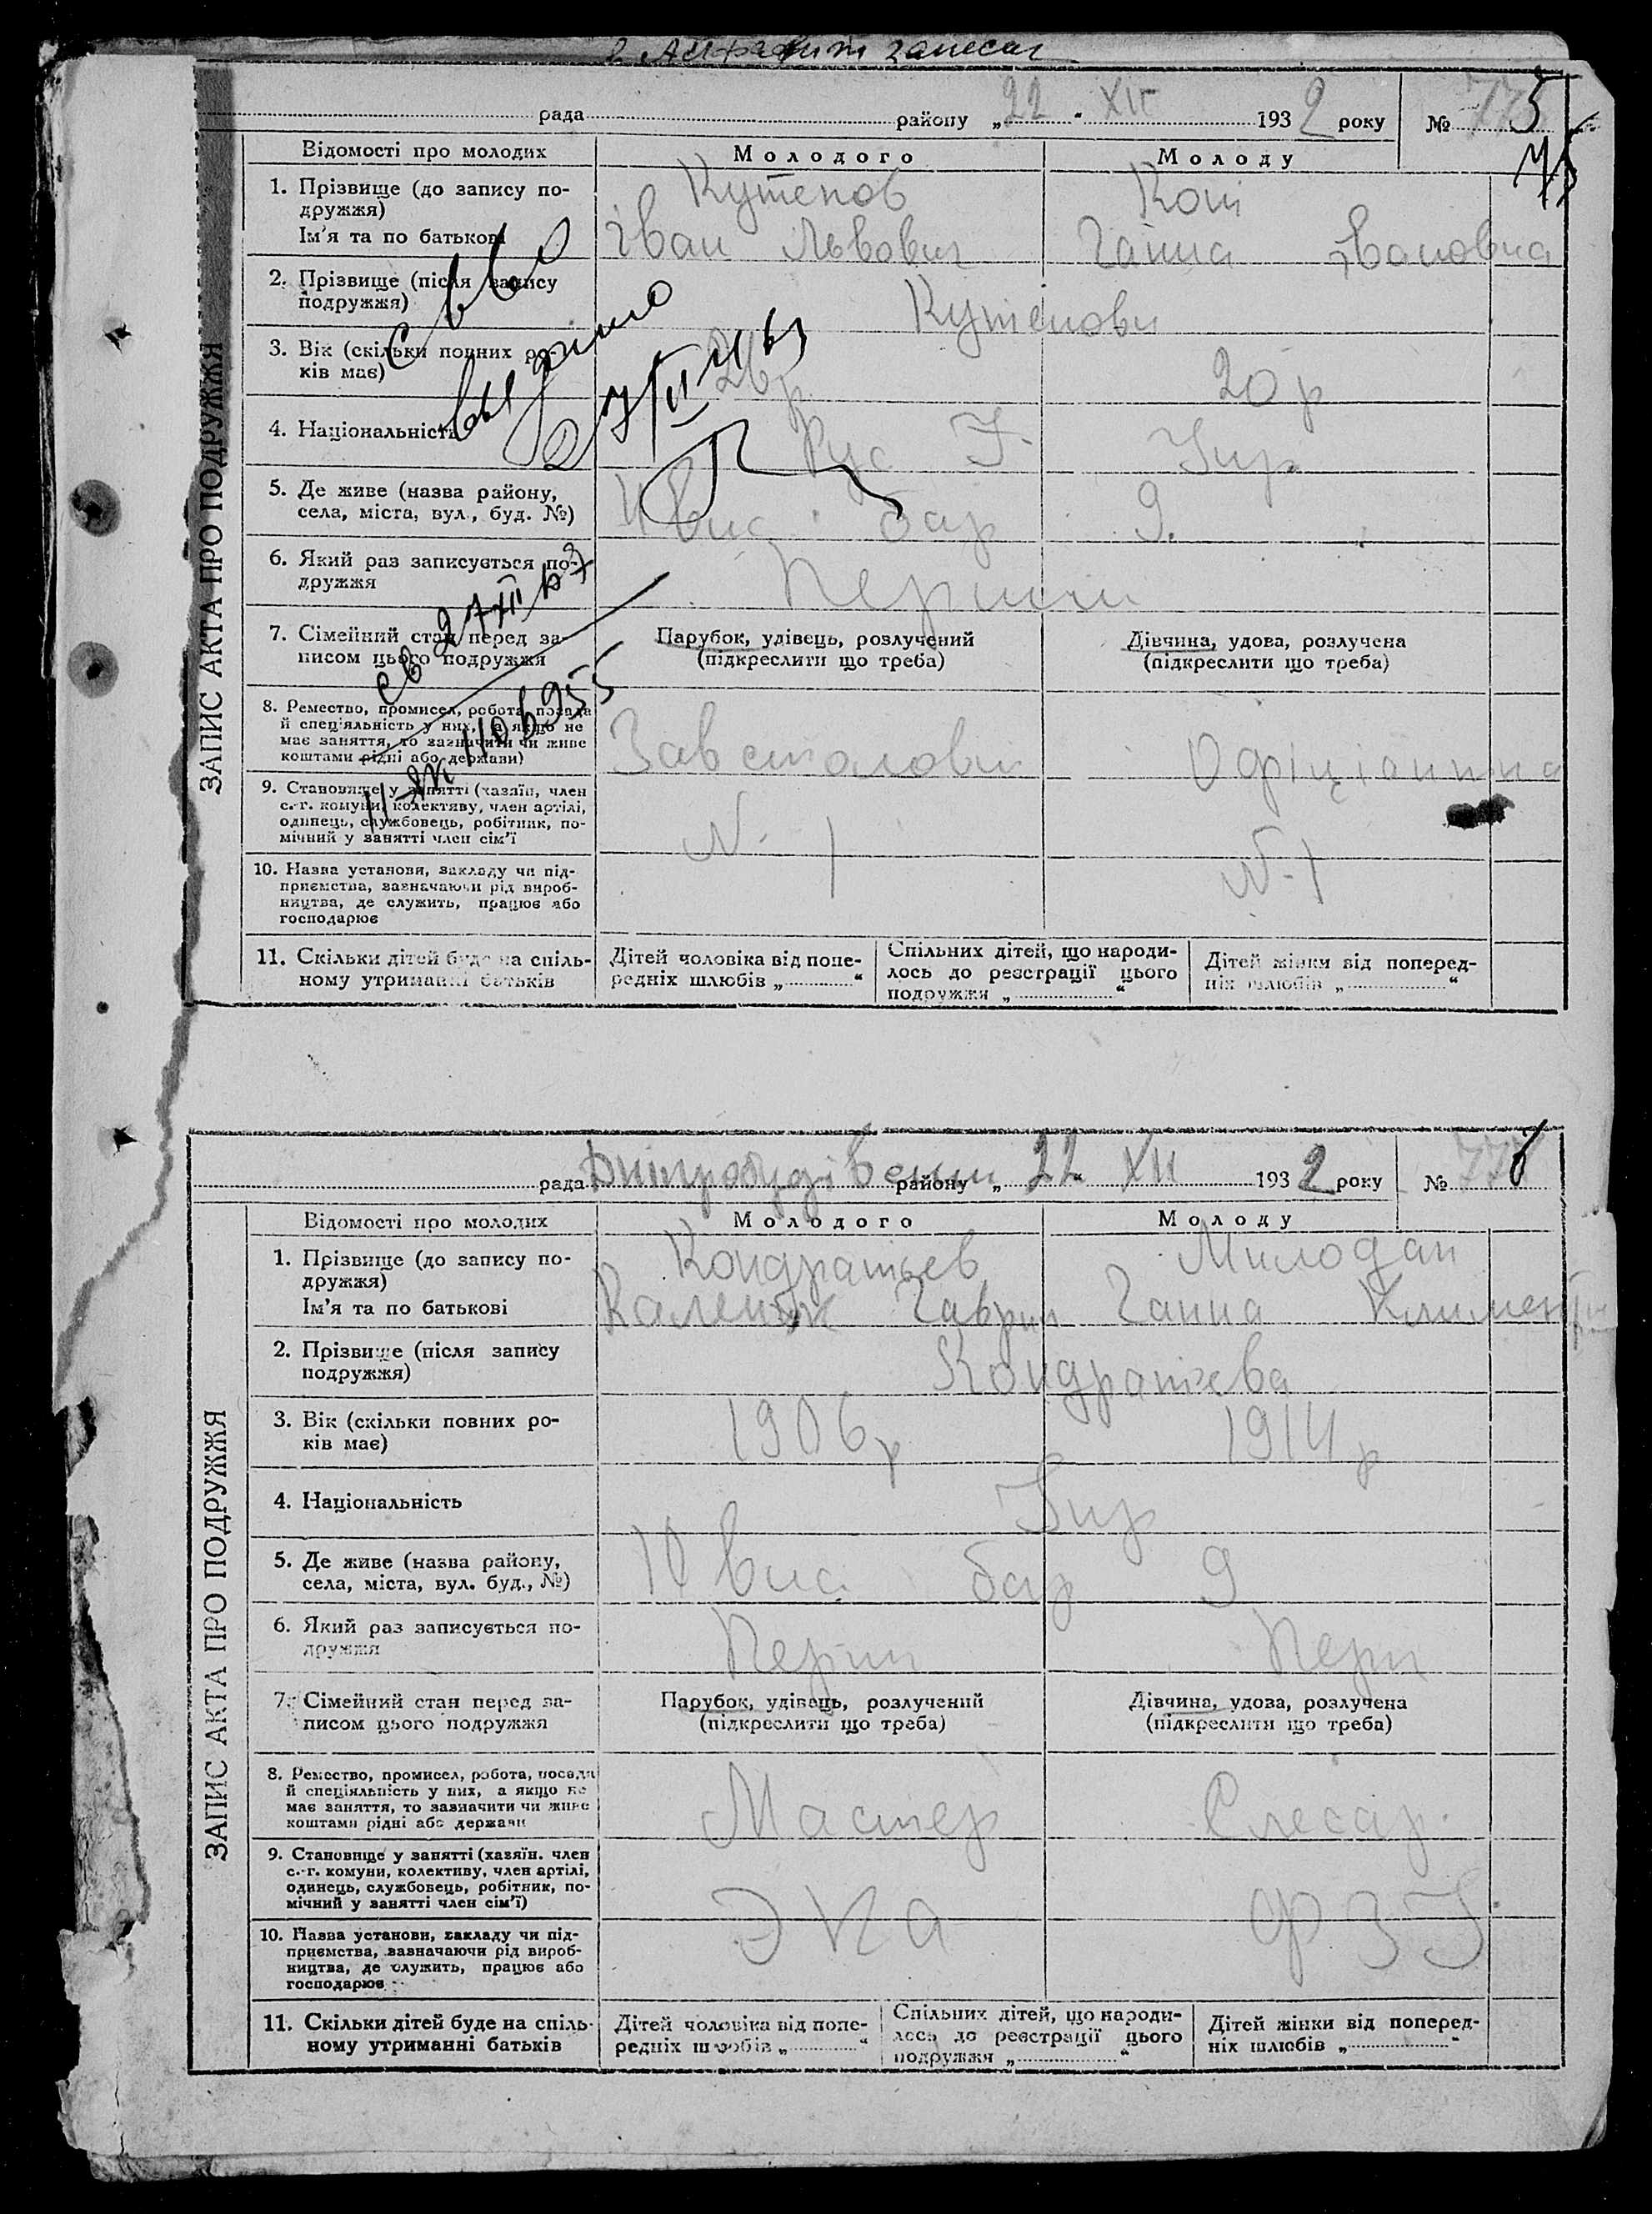 рада району „ 22 " XII 1932 року № 5
Відомості про молодих Молодого Молоду
1. Прізвище (до запису по-
дружжя) Кутепов
Ім'я та по батькові Іван Львович Ганна Івановна
2. Прізвище (після запису
подружжя) Кутепови
3. Вік (скільки повних ро-
ків має) 26 р 20 р
4. Національність Рус Укр
5. Де живе (назва району,
села, міста, вул., буд. №) вис. бар 9.
6. Який раз записується по-
дружжя Перший
7. Сімейний стан перед за- Парубок, удівець, розлучений Дівчина, удова, розлучена
писом цього подружжя (підкреслити що треба) (підкреслити що треба)
8. Ремество, промисел, робота, посада
й спеціяльність у них, а якщо не
має заняття, то зазначити чи живе
коштами рідні або держави) Зав столови Офіціантка
9. Становище у занятті (хазяїн, член
с.-г. комуни, колективу, член артілі,
одинець, службовець, робітник, по-
мічний у занятті член сім'ї N-1 N-1
10. Назва установи, закладу чи під-
приємства, зазначаючи рід вироб-
ництва, де служить, працює або
господарює
11. Скільки дітей буде на спіль- Дітей чоловіка від попе- Спільних дітей, що народи- Дітей жінки від поперед-
ному утриманні батьків редніх шлюбів „ “ лось до реєстрації цього ніх шлюбів „ “
подружжя „ “
ЗАПИС АКТА ПРО ПОДРУЖЖЯ
св-во
выдано
27/XII 63
св 27 XII 63
II-ЯК 1106955
рада Дніпробудівський району „ 22 " XII 1932 року № 6
Відомості про молодих Молодого Молоду
1. Прізвище (до запису по- Кондратьев Милодан
дружжя)
Ім'я та по батькові Гаврил Ганна
2. Прізвище (після запису
подружжя) Кондратьєва
3. Вік (скільки повних ро-
ків має) 1906 р 1914 р
4. Національність Укр
5. Де живе (назва району,
села, міста, вул. буд., №) вис. бар 9
6. Який раз записується по-
дружжя Перши Перш
7. Сімейний стан перед за- Парубок, удівець, розлучений Дівчина, удова, розлучена
писом цього подружжя (підкреслити що треба) (підкреслити що треба)
8. Ремество, промисел, робота, посада
й спеціяльність у них, а якщо не
має заняття, то зазначити чи живе
коштами рідні або держави Мастер Слесар.
9. Становище у занятті (хазяїн. член
с.-г. комуни, колективу, член артілі,
одинець, службовець, робітник, по-
мічний у занятті член сім'ї) ФЗУ
10. Назва установи, закладу чи під-
приємства, зазначаючи рід вироб-
ництва, де служить, працює або
господарює
11. Скільки дітей буде на спіль- Дітей чоловіка від попе- Спільних дітей, що народи- Дітей жінки від поперед-
ному утриманні батьків редніх шлюбів „ “ лось до реєстрації цього ніх шлюбів „ “
подружжя „ “
ЗАПИС АКТА ПРО ПОДРУЖЖЯ